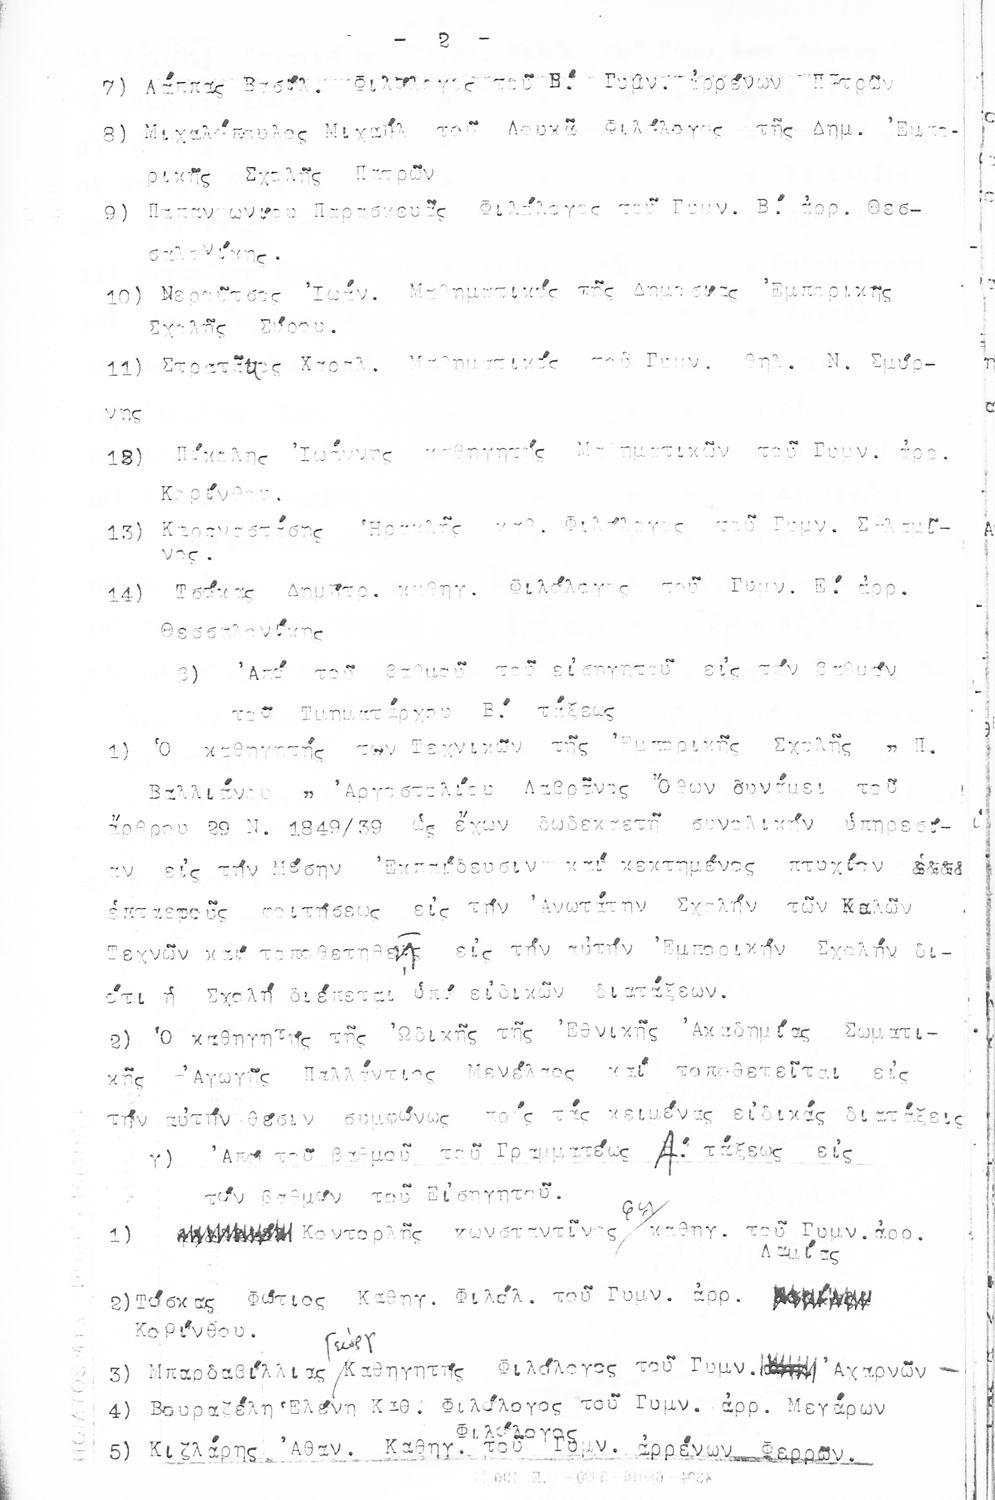 - 2 -
7) Λάππας Βασίλ. Φιλόλογος τοῦ Β! Γυμν. ἀρρένων Πατρῶν
8) Μιχαλόπουλος Μιχαήλ τοῦ Λουκᾶ Φιλόλογος τῆς Δημ. Ἐμπο-
ρικῆς Σχολῆς Πατρῶν
9) Παπαντωνίου Παρασκευᾶς Φιλόλογος τοῦ Γυμν. Β! ἀρρ. Θεσ-
σαλονίκης.
10) Νεροῦτσος Ἰωάν. Μαθηματικός τῆς Δημοσίας Ἐμπορικῆς
Σχολῆς Σύρου.
11) Στρατᾶκος Χαραλ. Μαθηματικός τοῦ Γυμν. θηλ. Ν. Σμύρ-
νης
12) Πίκολης Ἰωάννης καθηγητής Μαθηματικῶν τοῦ Γυμν. ἀρρ.
Κορίνθου.
13) Καραναστάσης Ἡρακλῆς καθ. Φιλόλογος τοῦ Γυμν. Σαλαμῖ-
νος.
14) Τσόκας Δημήτρ. καθηγ. Φιλόλογος τοῦ Γυμν. Ε! ἀρρ.
Θεσσαλονίκης
β) Ἀπό τοῦ βαθμοῦ τοῦ εἰσηγητοῦ εἰς τόν βαθμόν
τοῦ Τμηματάρχου Β! τάξεως
1) Ὁ καθηγητής τῶν Τεχνικῶν τῆς Ἐμπορικῆς Σχολῆς " Π.
Βαλλιάνου " Ἀργοστολίου Λαβρᾶνος Ὄθων δυνάμει τοῦ
ἄρθρου 29 Ν. 1849/39 ὡς ἔχων δωδεκαετῆ συνολικήν ὑπηρεσί-
αν εἰς τήν Μέσην Ἐκπαίδευσιν καί κεκτημένος πτυχίον
ἑπταετοῦς φοιτήσεως εἰς τήν Ἀνωτάτην Σχολήν τῶν Καλῶν
Τεχνῶν καί τοποθετηθείς εἰς τήν αὐτήν Ἐμπορικήν Σχολήν δι-
ότι ἡ Σχολή διέπεται ὑπό εἰδικῶν διατάξεων.
2) Ὁ καθηγητής τῆς Ὠδικῆς τῆς Ἐθνικῆς Ἀκαδημίας Σωματι-
κῆς Ἀγωγῆς Παλλάντιος Μενέλαος καί τοποθετεῖται εἰς
τήν αὐτήν θέσιν συμφώνως πρός τάς κειμένας εἰδικάς διατάξεις
γ) Ἀπό τοῦ βαθμοῦ τοῦ Γραμματέως Α! τάξεως εἰς
τόν βαθμόν τοῦ Εἰσηγητοῦ.
1) Κοντορλῆς κωνσταντῖνος φιλ/καθηγ. τοῦ Γυμν.ἀρρ.
Λαμίας
2)Τόσκας Φώτιος Καθηγ. Φιλόλ. τοῦ Γυμν. ἀρρ.
Κορίνθου.
3) Μπαρδαβίλλιας Γεώργ/Καθηγητής Φιλόλογος τοῦ Γυμν. Ἀχαρνῶν -
4) Βουραζέλη Ἑλένη Καθ. Φιλόλογος τοῦ Γυμν. ἀρρ. Μεγάρων
5) Κιζλάρης Ἀθαν. Καθηγ. Φιλόλογος τοῦ Γυμν. ἀρρένων Φερρῶν.